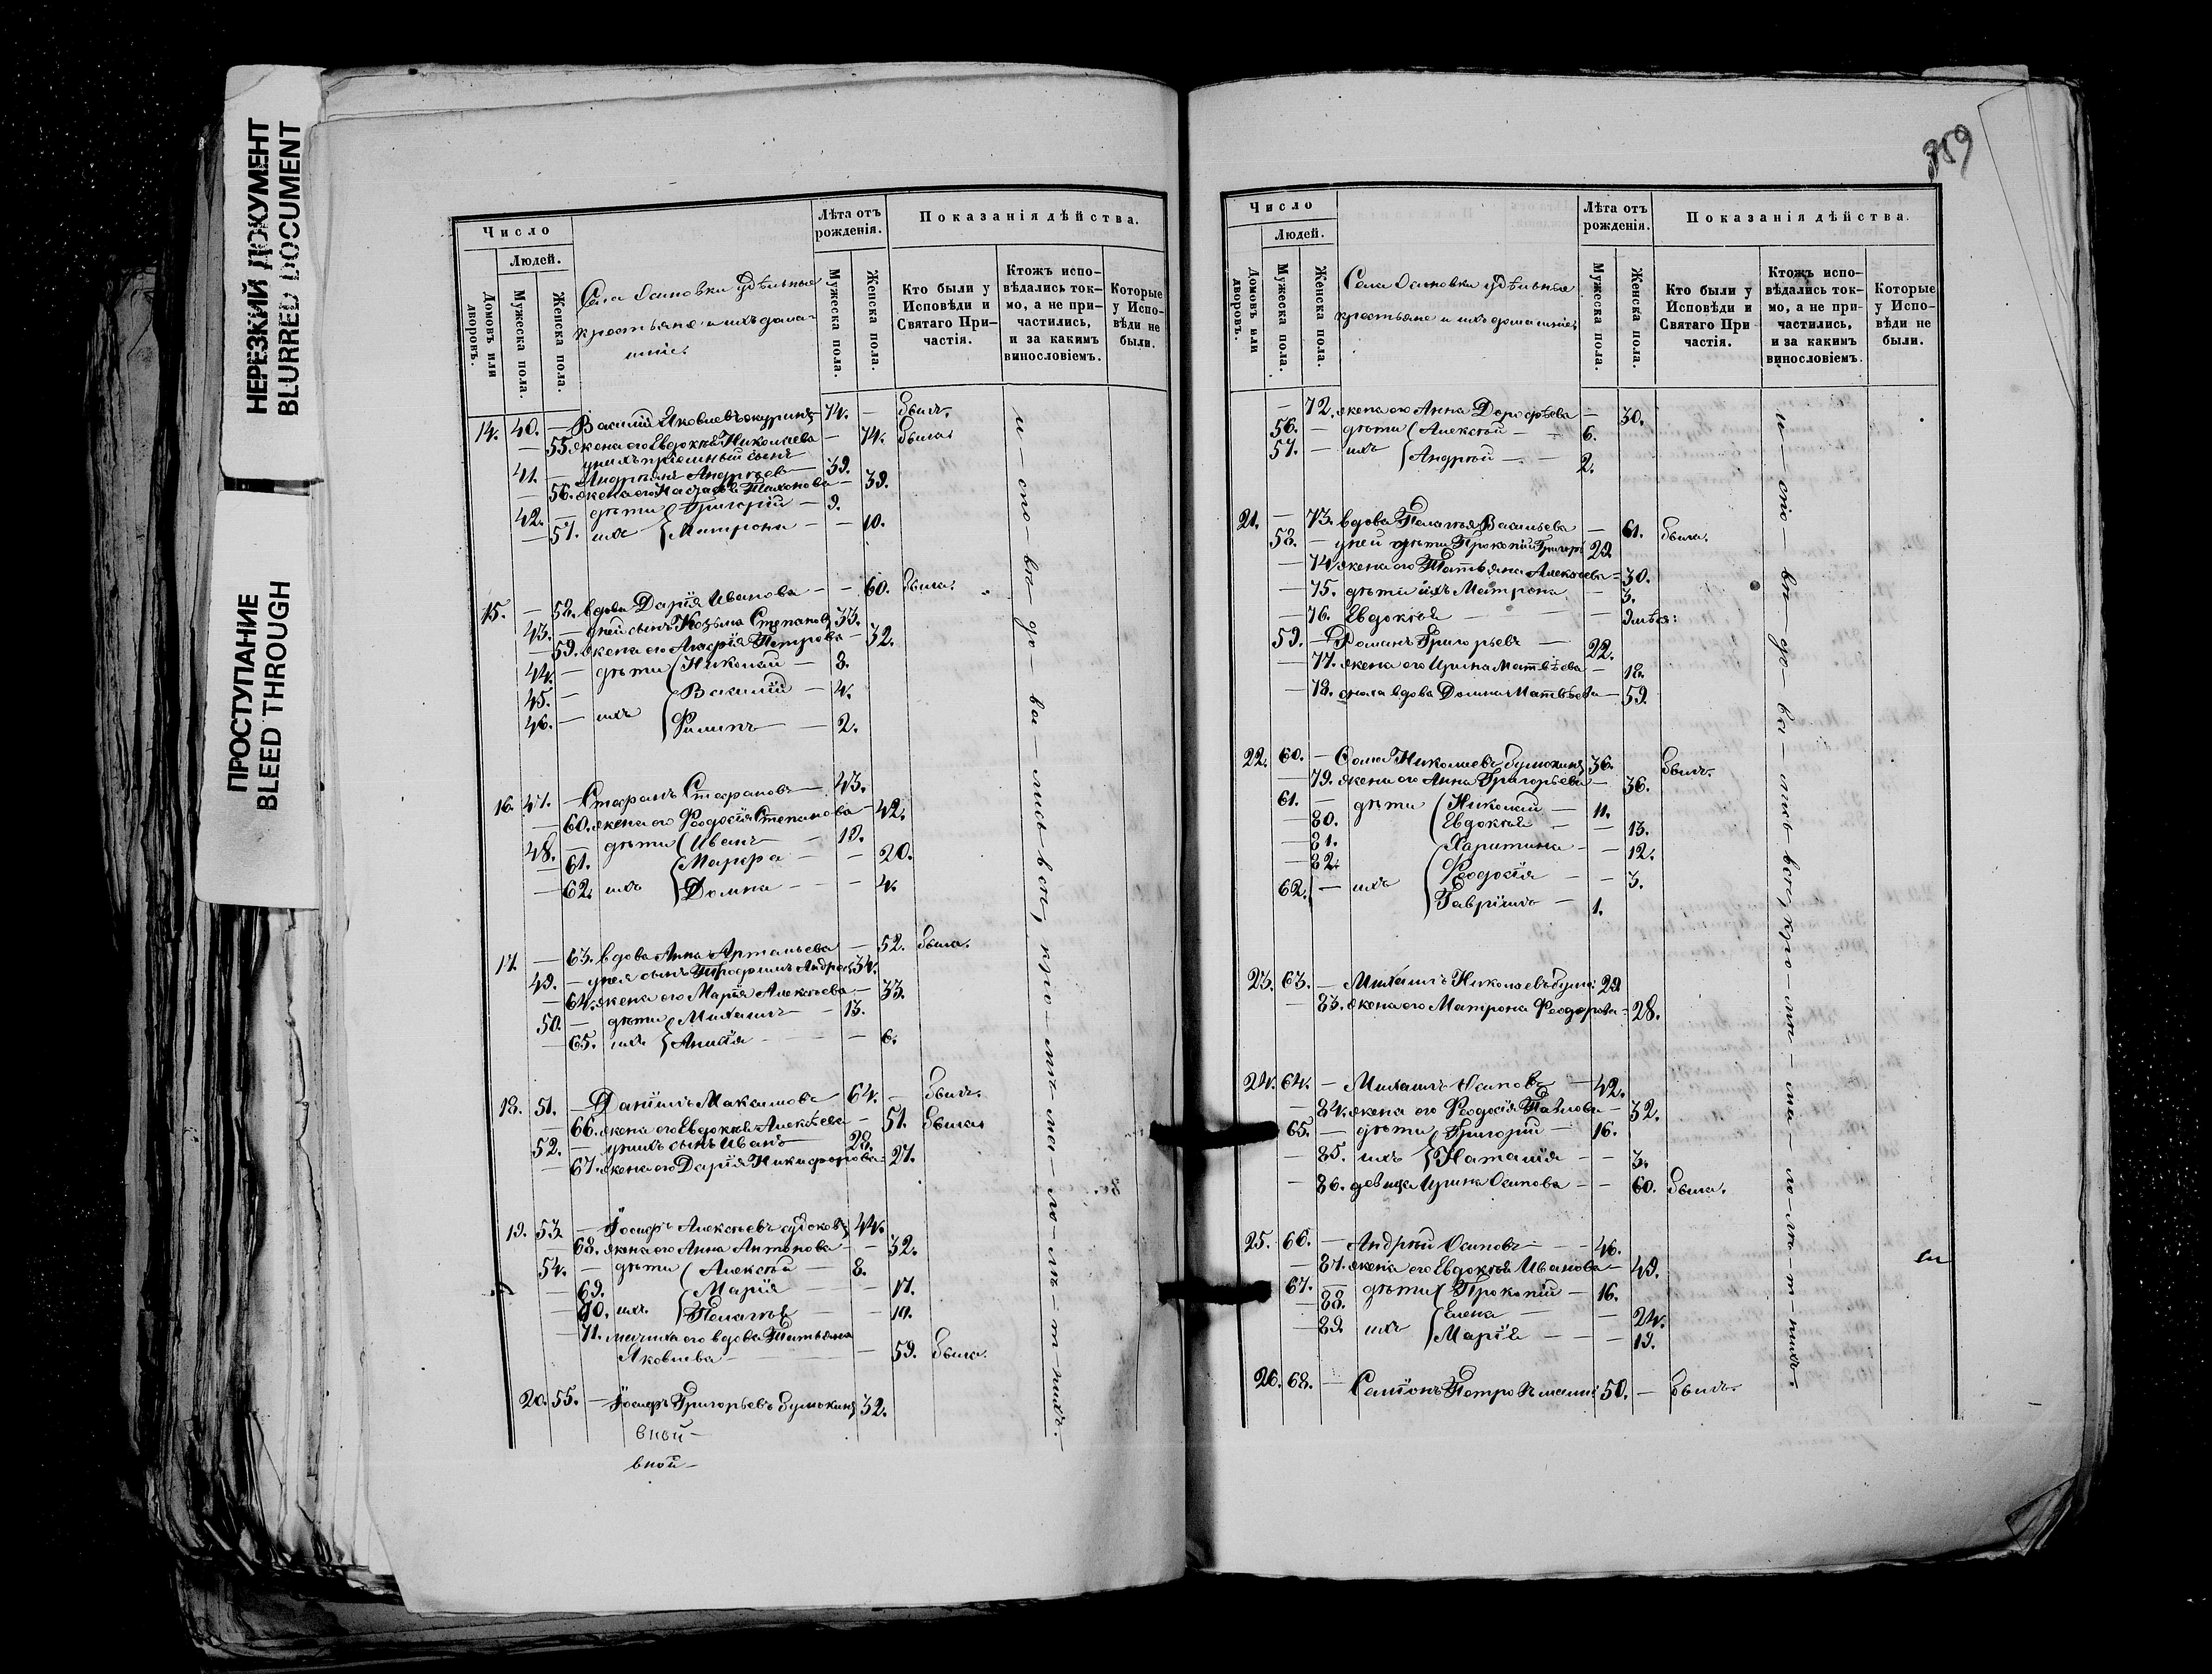 НЕРЕЗКИЙ ДОКУМЕНТ
BLURRED DOCUMENT
ПРОСТУПАНИЕ
BLEED THROUGH
Число
Людей.
Домовъ или дворовъ.
Мужеска пола.
Женска пола.
Села Осиновки удѣльные
крестьяне и ихъ домашніе.
Лѣта отъ рожденія.
Мужеска пола.
Женска пола.
Показанія дѣйства.
Кто были у Исповѣди и Святаго Причастія.
Ктожъ исповѣдались токмо, а не причастились, и за какимъ винословіемъ.
Которые у Исповѣди не были.
14. 40. — Василій Яковлевъ 74. — былъ.
— 55. жена его Евдокія Николаева — 74. была.
у нихъ пріемный сынъ
41. — Андреянъ Андреевъ — 39.
— 56. жена его Настасья Тихонова — 39.
42. — дѣти Григорій — 9.
— 57. ихъ Матрона — — 10.
15. — 58. вдова Дарія Иванова — — 60. была.
43. — у ней сынъ Козьма Степановъ 33.
— 59. жена его Петрова — 32.
44. — дѣти Николай — 8.
45. — Василій — 4.
46. — ихъ Филипъ — 2.
16. 47. — Стефанъ Стефановъ — 43.
— 60. жена его Феодосія Степанова — 42.
48. — дѣти Иванъ — 19.
— 61. Марфа — — 20.
— 62. ихъ Домна — — 4.
17. — 63. вдова Анна — 52. была.
49. — у нея сынъ Трофимъ 34.
— 64. жена его Марія Алексѣева — 33.
50. — дѣти Михаилъ — 13.
— 65. ихъ Анисія — — 6.
18. 51. — Даніилъ Максимовъ 64. — былъ.
— 66. жена его Евдокія Алексѣева — 51. была.
52. — у нихъ сынъ Иванъ — 28.
— 67. жена его Дарія Никифорова — 27.
19. 53. — Іосифъ Алексѣевъ 44.
— 68. жена его Анна Антонова — — 32.
54. — дѣти Алексѣй — 8.
— 69. Марія — — 17.
— 70. ихъ Пелагія — 10.
— 71. мачиха его вдова Татьяна
Яковлева — — 59. была.
20. 55. — Іосифъ Григорьевъ 32.
вной —
вной —
и — спо — вѣ — до — ва — лись — всѣ, кро — мѣ — ма — ло — лѣ — т — нихъ.
359
Число
Людей.
Домовъ или дворовъ.
Мужеска пола.
Женска пола.
Села Осиновки удѣльные
крестьяне и ихъ домашніе.
Лѣта отъ рожденія.
Мужеска пола.
Женска пола.
Показанія дѣйства.
Кто были у Исповѣди и Святаго Причастія.
Ктожъ исповѣдались токмо, а не причастились, и за какимъ винословіемъ.
Которые у Исповѣди не были.
— 72. жена его Анна Дорофѣева — 30.
56. — дѣти Алексѣй — 6.
57. — ихъ Андрей — 2.
21. — 73. вдова Пелагія Васильева — 61. была.
58. — у ней дѣти Прокопій Григорьев 29.
— 74. жена его Татьяна Алексѣева — 30.
— 75. дѣти ихъ Матрона — 3.
— 76. Евдокія —
59. — Романъ Григорьевъ — 22.
— 77. жена его Ирина Матвѣева — 18.
— 78. вдова Домна Матвѣева — 59.
22. 60. — Николаевъ 36. былъ.
— 79. жена его Анна Григорьева — 36.
61. — дѣти Николай — 11.
— 80. Евдокія — — 13.
— 81. Харитина — — 12.
— 82. Феодосія — — 3.
62. — ихъ Гавріилъ — 1.
23. 63. — Михаилъ Николаевъ 29.
— 83. жена его Матрона Феодорова — 28.
24. 64. — Михаилъ Осиповъ — 42.
— 84. жена его Феодосія Павлова — 32.
65. — дѣти Григорій — 16.
— 85. ихъ Наталія — — 3.
— 86. девица Ирина Осипова — — 60. была.
25. 66. — Андрей Осиповъ — — 46.
— 87. жена его Евдокія Иванова — 49.
67. — дѣти Прокопій — 16.
— 88. Елена — — 24.
— 89. ихъ Марія — — — 19.
26. 68. — 50. — былъ.
и — спо — вѣ — до — ва — лись — всѣ, кро — мѣ — ма — ло — лѣ — т — нихъ.